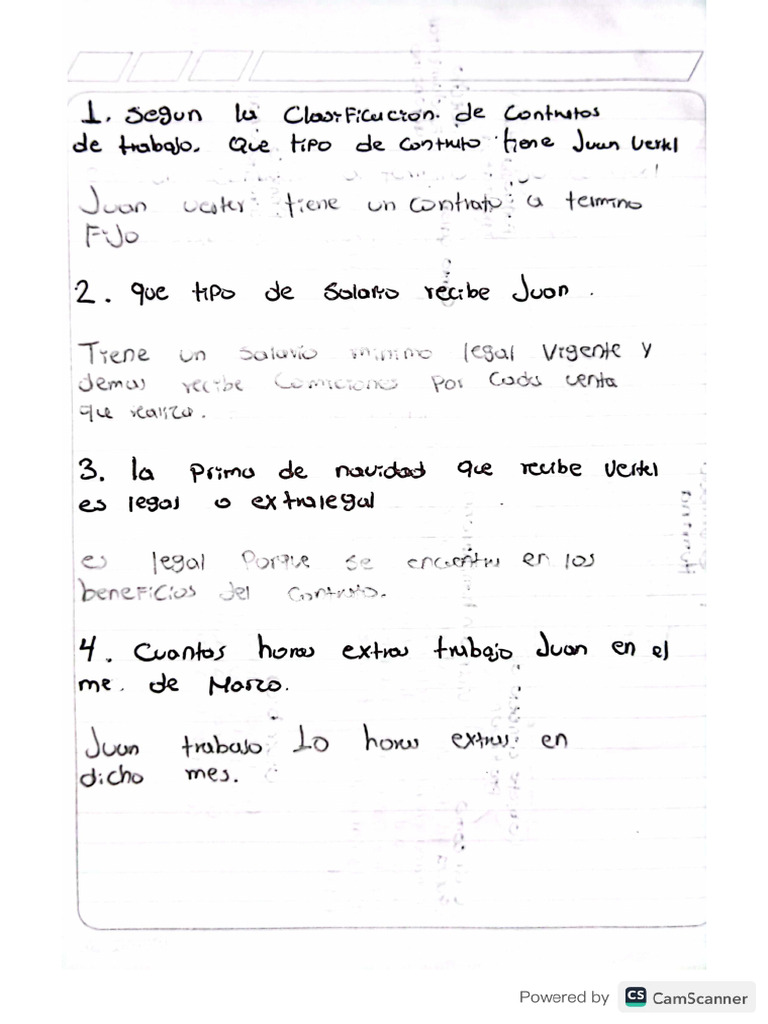 1. Segun la Clasificacion. de Contratos
de trabajo. Que tipo de contrato tiene Juan Vertel
Juan vester tiene un contrato a termino
Fijo
2. que tipo de Salario recibe Juan.
Tiene un salario minimo legal Vigente y
demas recibe Comiciones Por Cada venta
que realiza.
3. la Prima de navidad que recibe Vertel
es legal o extralegal
es legal Porque se encuentra en los
beneficios del Contrato.
4. Cuantas horas extras trabajo Juan en el
me. de Marzo.
Juan trabajo 10 horas extras en
dicho mes.
Powered by CS CamScanner